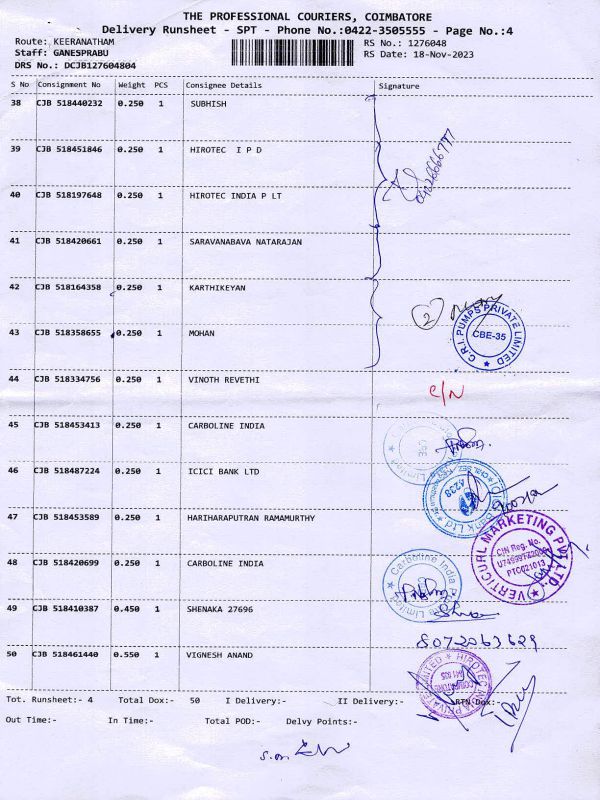 THE PROFESSIONAL COURIERS, COIMBATORE
Delivery Runsheet - SPT - Phone No.:0422-3505555 - Page No.:4
Route: KEERANATHAM RS No.: 1276048
Staff: GANESPRABU RS Date: 18-Nov-2023
DRS No.: DCJB127604804
S No Consignment No Weight PCS Consignee Details Signature
38 CJB 518440232 0.250 1 SUBHISH
39 CJB 518451846 0.250 1 HIROTEC I P D
40 CJB 518197648 0.250 1 HIROTEC INDIA P LT
41 CJB 518420661 0.250 1 SARAVANABAVA NATARAJAN
42 CJB 518164358 0.250 1 KARTHIKEYAN
2
C.R.I. PUMPS PRIVATE LIMITED
CBE-35
43 CJB 518358655 0.250 1 MOHAN
44 CJB 518334756 0.250 1 VINOTH REVETHI
C/N
45 CJB 518453413 0.250 1 CARBOLINE INDIA
46 CJB 518487224 0.250 1 ICICI BANK LTD
47 CJB 518453589 0.250 1 HARIHARAPUTRAN RAMAMURTHY
VERTICURL MARKETING PVT. LTD.
CIN Reg. No.
PTC021013
48 CJB 518420699 0.250 1 CARBOLINE INDIA
Carboline India Private Limited
49 CJB 518410387 0.450 1 SHENAKA 27696
8072063629
50 CJB 518461440 0.550 1 VIGNESH ANAND
HIROTEC INDIA PRIVATE LIMITED
Tot. Runsheet:- 4 Total Dox:- 50 I Delivery:- II Delivery:- RTN Dox:-
Out Time:- In Time:- Total POD:- Delvy Points:-